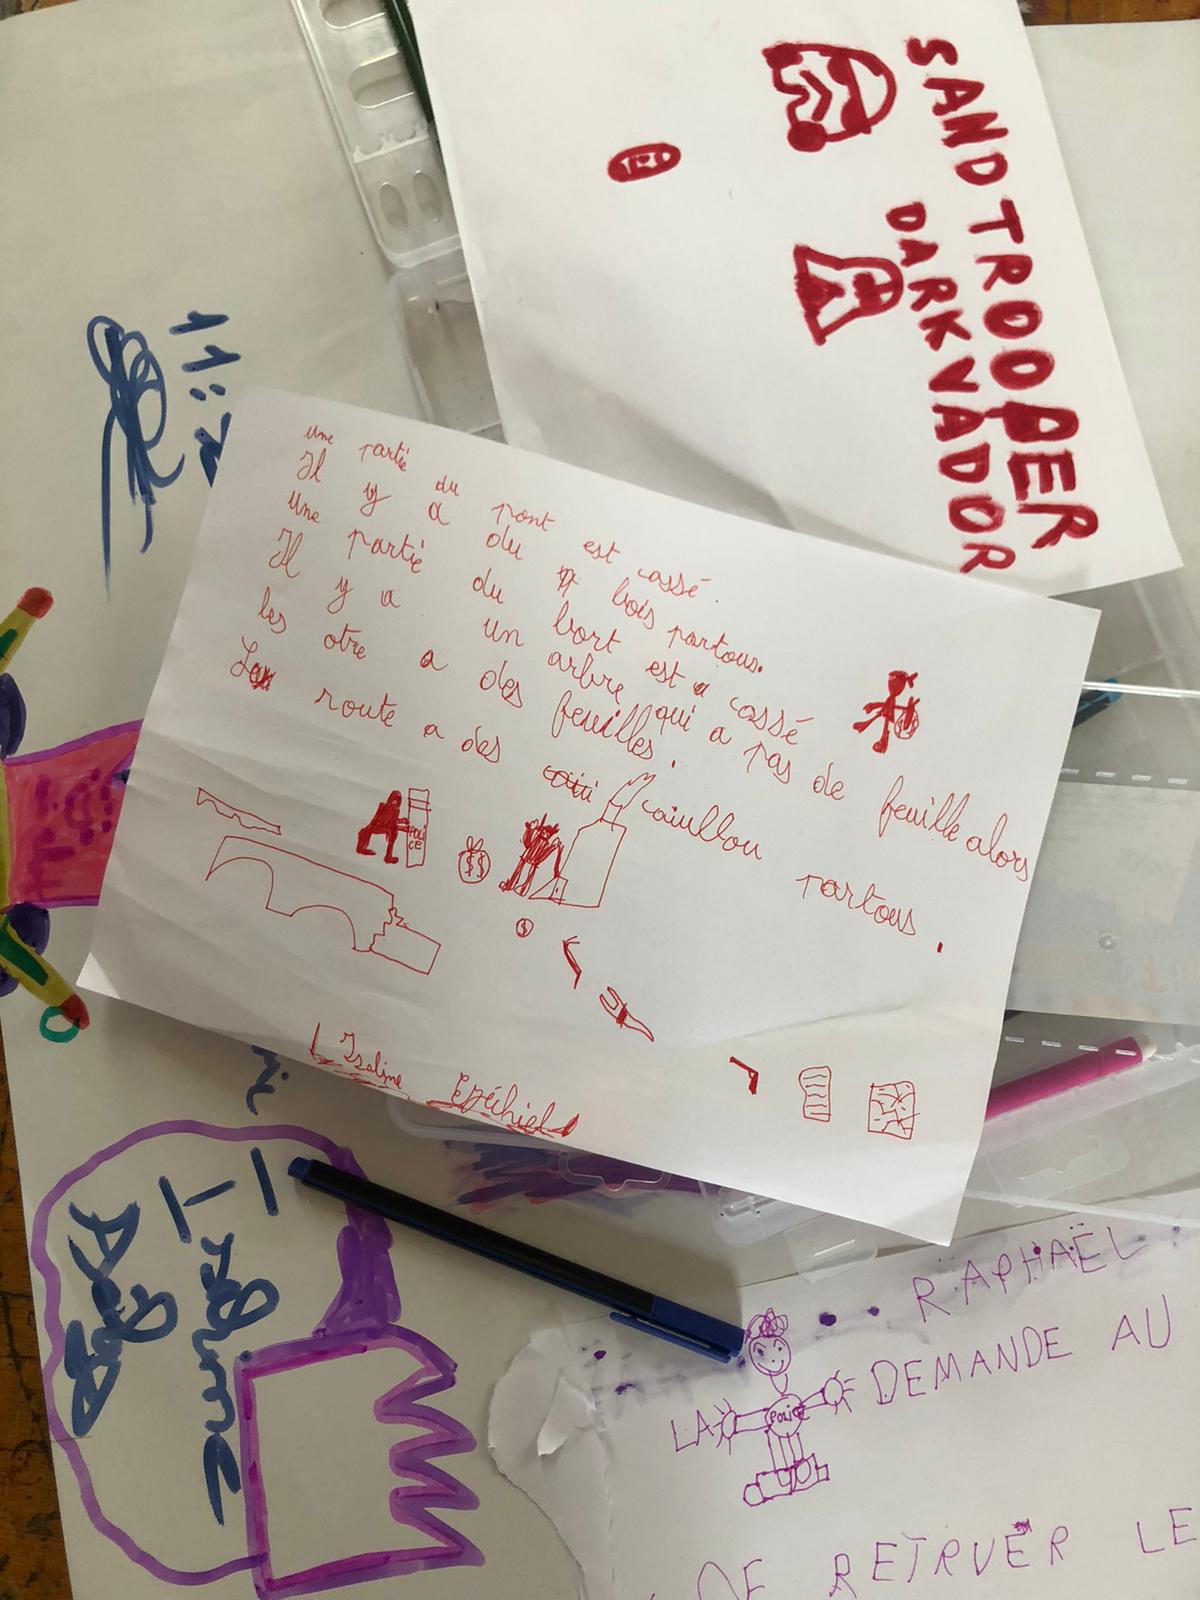 SAND TROOPER
DARK VADOR
une partie du pont est cassé.
Il y a du bois partous.
une partie du bort est a cassé
Il y a un arbre qui a pas de feuille alors
les otre a des feuilles.
La route a des caiullou partous.
POLICE
$$
$
Isaline Ezéchiel
11:
RAPHAËL
DEMANDE AU
LA
POLICE
DE RETRUER LE